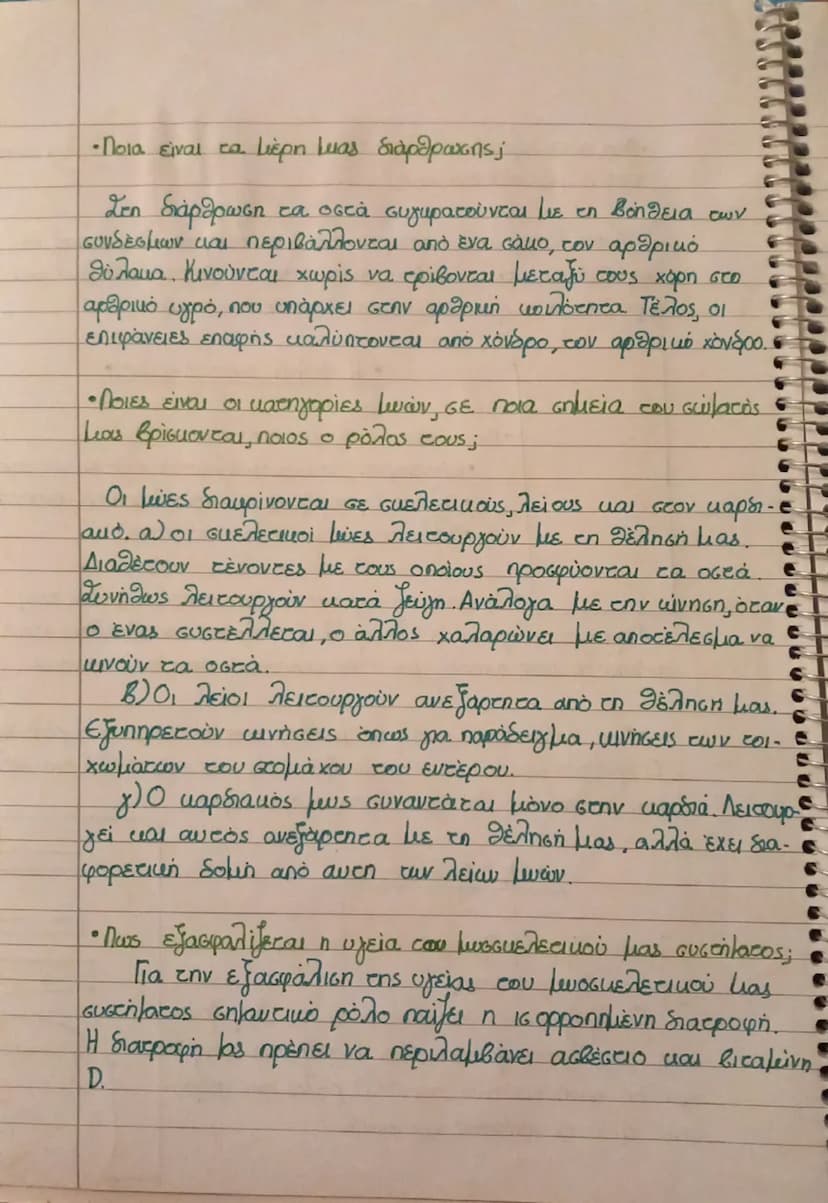 •Ποια είναι τα μέρη μιας διάρθρωσης;
Στη διάρθρωση τα οστά συγκρατούνται με τη βοήθεια των
συνδέσμων και περιβάλλονται από ένα σάκο, τον αρθρικό
θύλακα. Κινούνται χωρίς να τρίβονται μεταξύ τους χάρη στο
αρθρικό υγρό, που υπάρχει στην αρθρική κοιλότητα. Τέλος, οι
επιφάνειες επαφής καλύπτονται από χόνδρο, τον αρθρικό χόνδρο.
•Ποιες είναι οι κατηγορίες μυών, σε ποια σημεία του σώματός
μας βρίσκονται, ποιος ο ρόλος τους;
Οι μύες διακρίνονται σε σκελετικούς, λείους και στον καρδι-
ακό. α) οι σκελετικοί μύες λειτουργούν με τη θέλησή μας.
Διαθέτουν τένοντες με τους οποίους προσφύονται τα οστά.
Συνήθως λειτουργούν κατά ζεύγη. Ανάλογα με την κίνηση, όταν
ο ένας συστέλλεται, ο άλλος χαλαρώνει με αποτέλεσμα να
κινούν τα οστά.
β) Οι λείοι λειτουργούν ανεξάρτητα από τη θέλησή μας.
Εξυπηρετούν κινήσεις όπως για παράδειγμα, κινήσεις των τοι-
χωμάτων του στομάχου του εντέρου.
γ) Ο καρδιακός μυς συναντάται μόνο στην καρδιά. Λειτουρ-
γεί και αυτός ανεξάρτητα με τη θέλησή μας, αλλά έχει δια-
φορετική δομή από αυτη των λείων μυών.
•Πως εξασφαλίζεται η υγεία του μυοσκελετικού μας συστήματος;
Για την εξασφάλιση της υγείας του μυοσκελετικού μας
συστήματος σημαντικό ρόλο παίζει η ισορροπημένη διατροφή.
Η διατροφή μας πρέπει να περιλαμβάνει ασβέστιο και βιταμίνη
D.